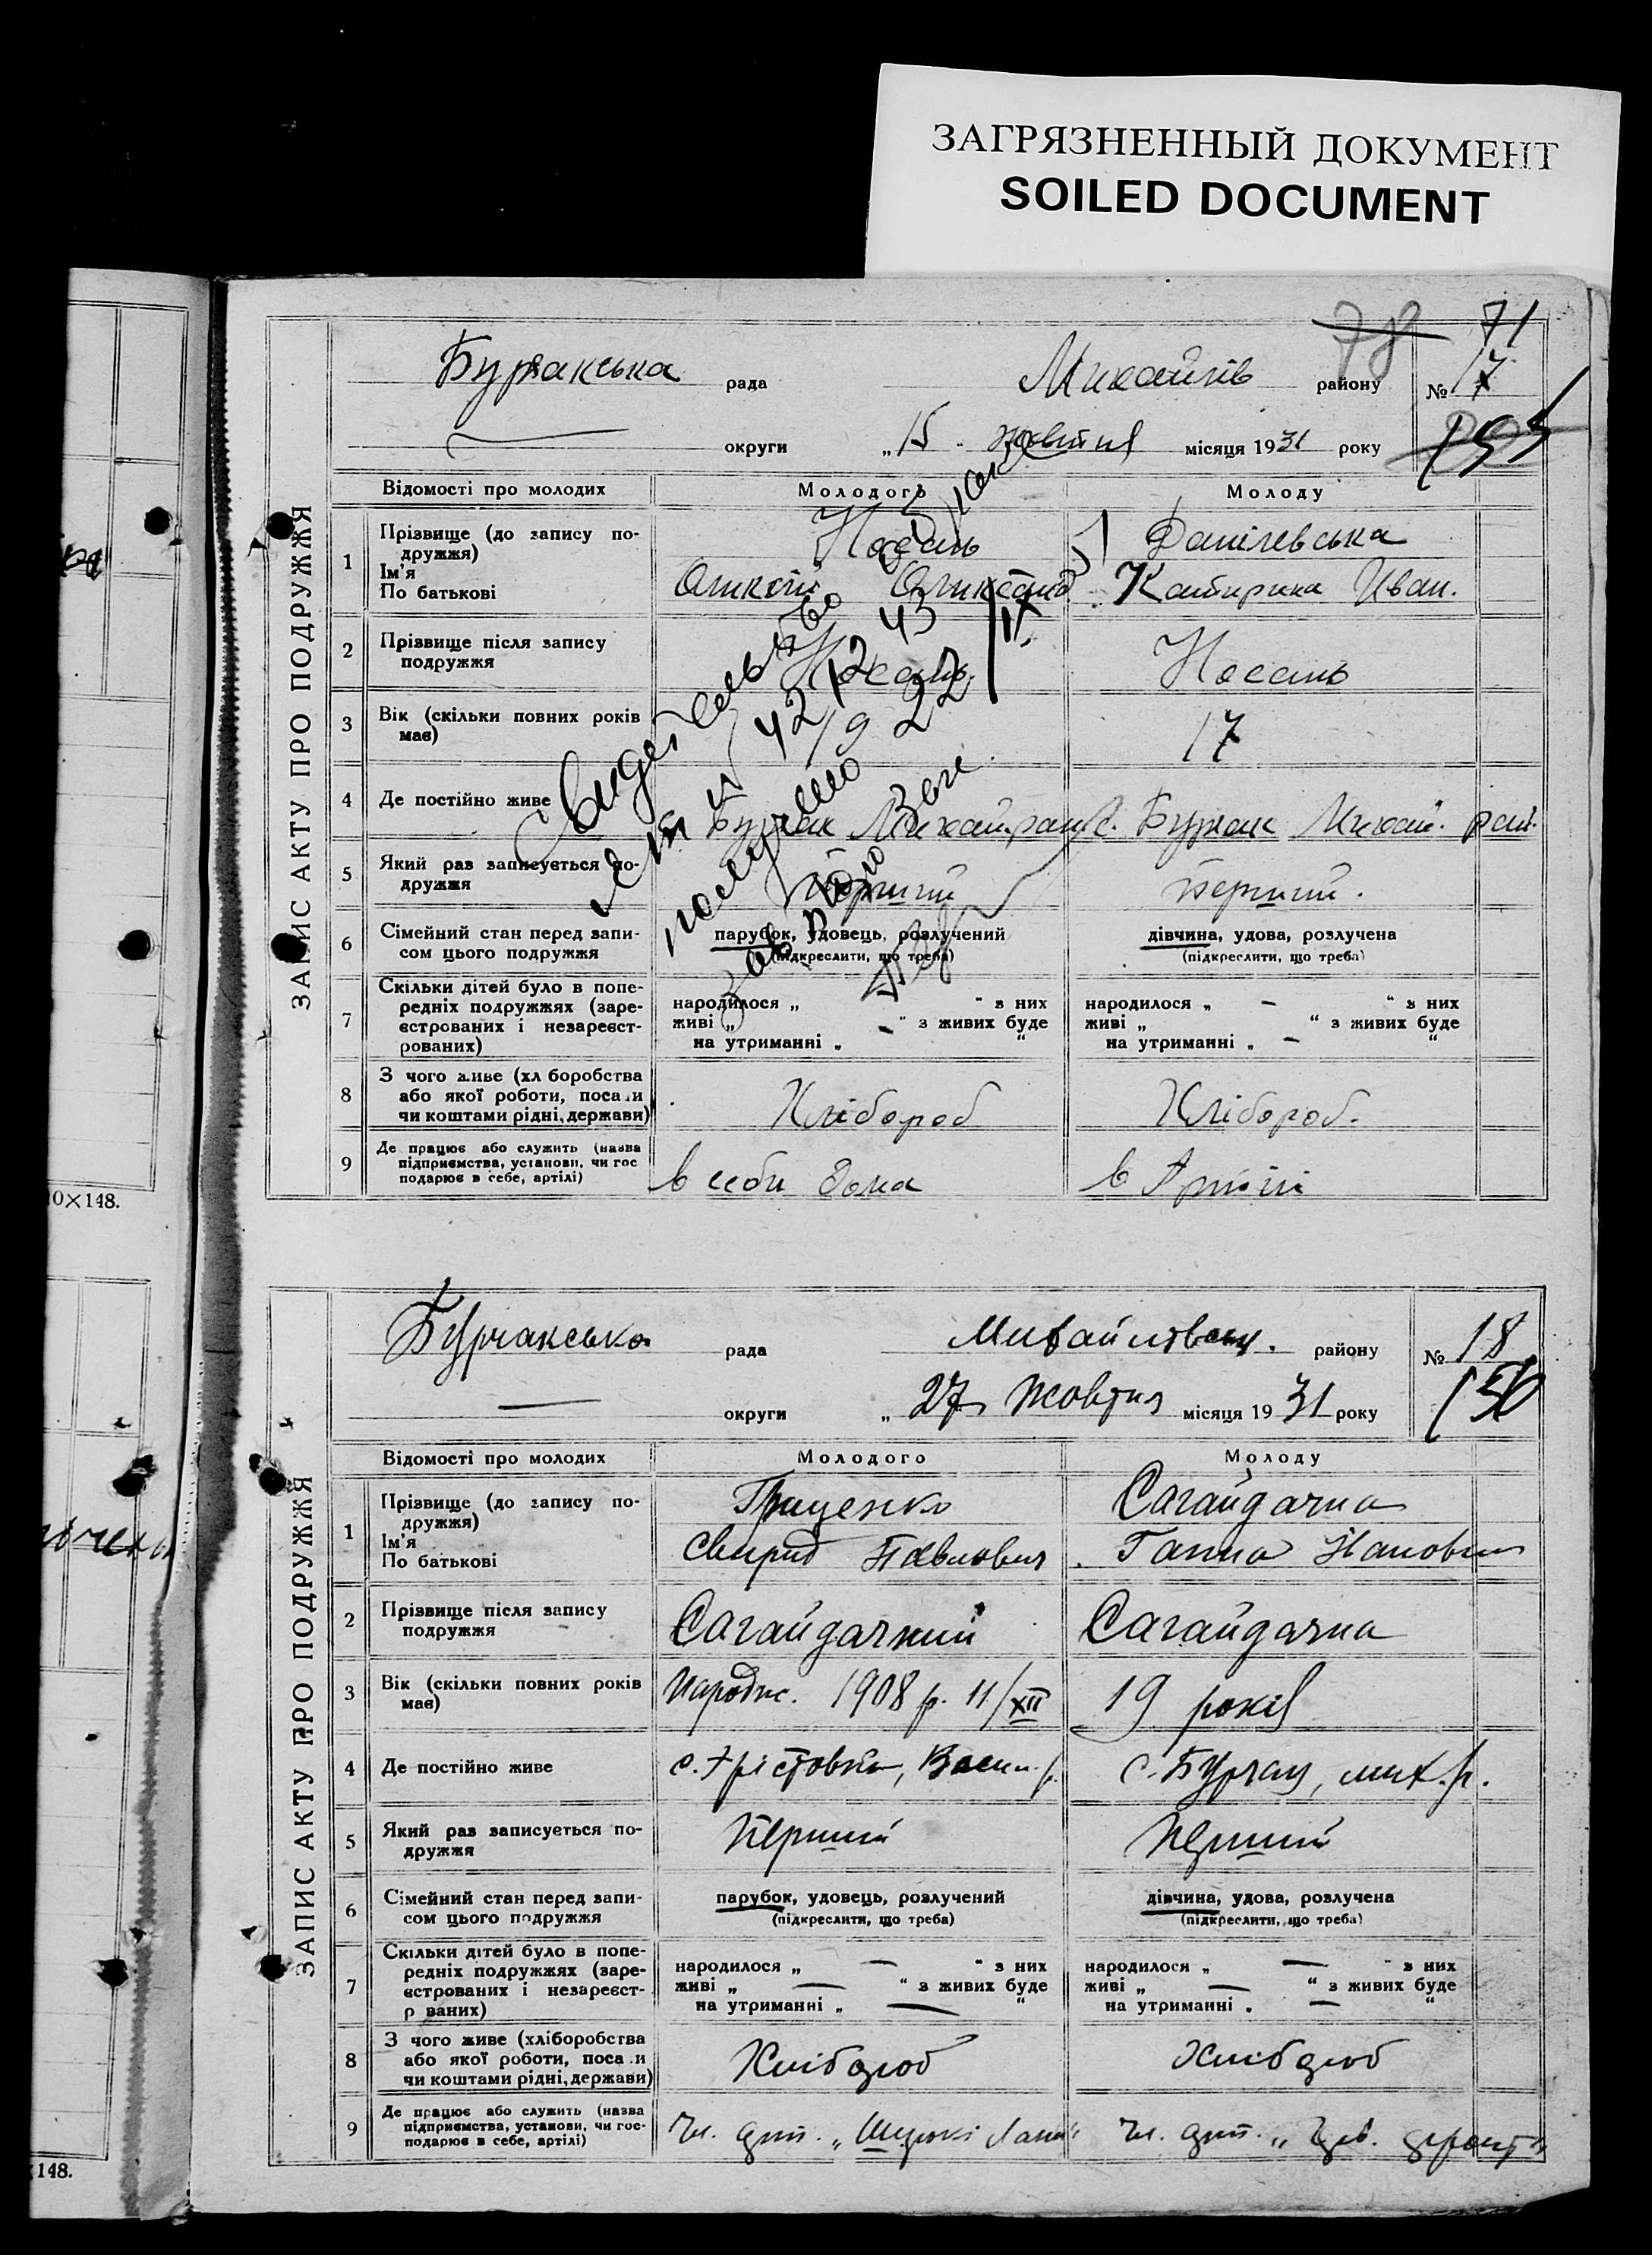 ЗАГРЯЗНЕННЫЙ ДОКУМЕНТ
SOILED DOCUMENT
78 71
Бурчакська рада Михайлів району № 17
округи „15" жовтня місяця 1931 року 155
ЗАПИС АКТУ ПРО ПОДРУЖЖЯ
Відомості про молодих Молодого Молоду
1 Прізвище (до запису по-
дружжя)
Ім'я
По батькові
Носань
Данілевська
Катирина Иван.
2 Прізвище після запису
подружжя
Носань
Носань
3 Вік (скільки повних років
має)
17
4 Де постійно живе
Бурчак Михай. рай.
с. Бурчак Михай. рай.
5 Який раз записується по-
дружжя
Перший
Перший.
6 Сімейний стан перед запи-
сом цього подружжя
парубок, удовець, розлучений
(підкреслити, що треба)
дівчина, удова, розлучена
(підкреслити, що треба)
7 Скільки дітей було в попе-
редніх подружжях (заре-
єстрованих і незареєст-
рованих)
народилося „ " з них
живі „ " з живих буде
на утриманні „ "
народилося „ — " з них
живі „ " з живих буде
на утриманні „ — "
8 З чого живе (хл боробства
або якої роботи, поса и
чи коштами рідні, держави)
Хлібороб
Хлібороб.
9 Де працює або служить (назва
підприємства, установи, чи гос
подарює в себе, артілі)
в себи дома
в Артілі
Свидетельство
получено
0×148.
Бурчакська рада Михайлівськ. району № 18
— округи „27" Жовтня місяця 1931 року 156
ЗАПИС АКТУ ПРО ПОДРУЖЖЯ
Відомості про молодих Молодого Молоду
1 Прізвище (до запису по-
дружжя)
Ім'я
По батькові
Гриценко
Свирид Павлович
Сагайдачна
Ганна
2 Прізвище після запису
подружжя
Сагайдачний
Сагайдачна
3 Вік (скільки повних років
має)
Народж. 1908 р. 11/XII
19 років
4 Де постійно живе
с. Бурчак, мих. р.
5 Який раз записується по-
дружжя
Перший
Перший
6 Сімейний стан перед запи-
сом цього подружжя
парубок, удовець, розлучений
(підкреслити, що треба)
дівчина, удова, розлучена
(підкреслити, що треба)
7 Скільки дітей було в попе-
редніх подружжях (заре-
єстрованих і незареєст-
р ваних)
народилося „ — " з них
живі „ — " з живих буде
на утриманні „ — "
народилося „ — " з них
живі „ — " з живих буде
на утриманні „ — "
8 З чого живе (хліборобства
або якої роботи, поса и
чи коштами рідні, держави)
Хлібороб
Хлібороб
9 Де працює або служить (назва
підприємства, установи, чи гос-
подарює в себе, артілі)
Чл. арт. „Широкі Лани"
Чл. арт.
148.